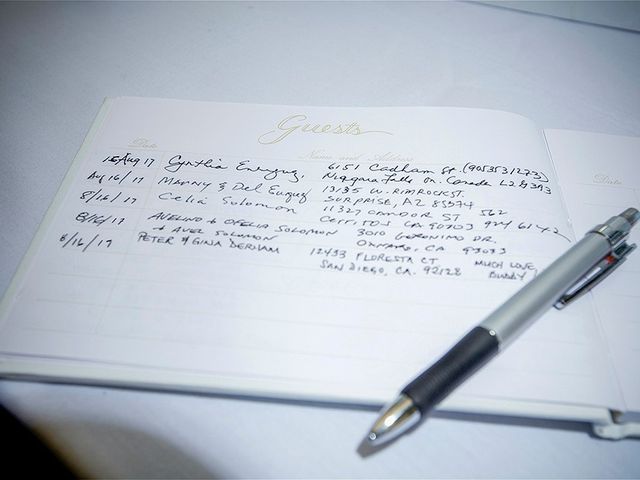 Guests
Date Name and Address Date
15 Aug 17 Cynthia Enriquez, 6151 Cadham St. (9053531273)
Niagara Falls on Canada L2G
Aug 16/17 Manny & Del Enriquez 13135 W. RIMROCK ST.
SURPRISE, AZ
8/16/17 Celia Solomon 11327 ST 562
CERRITOS CA 90703 924 6142
8/16/17 AVELINO & OFELIA SOLOMON 3010 GERONIMO DR.
& AVEL SOLOMON OXNARD, CA 93033
8/16/17 PETER & GINA DERHAM 12433 FLORESTA CT MUCH LOVE,
SAN DIEGO, CA. 92128 BUDDY